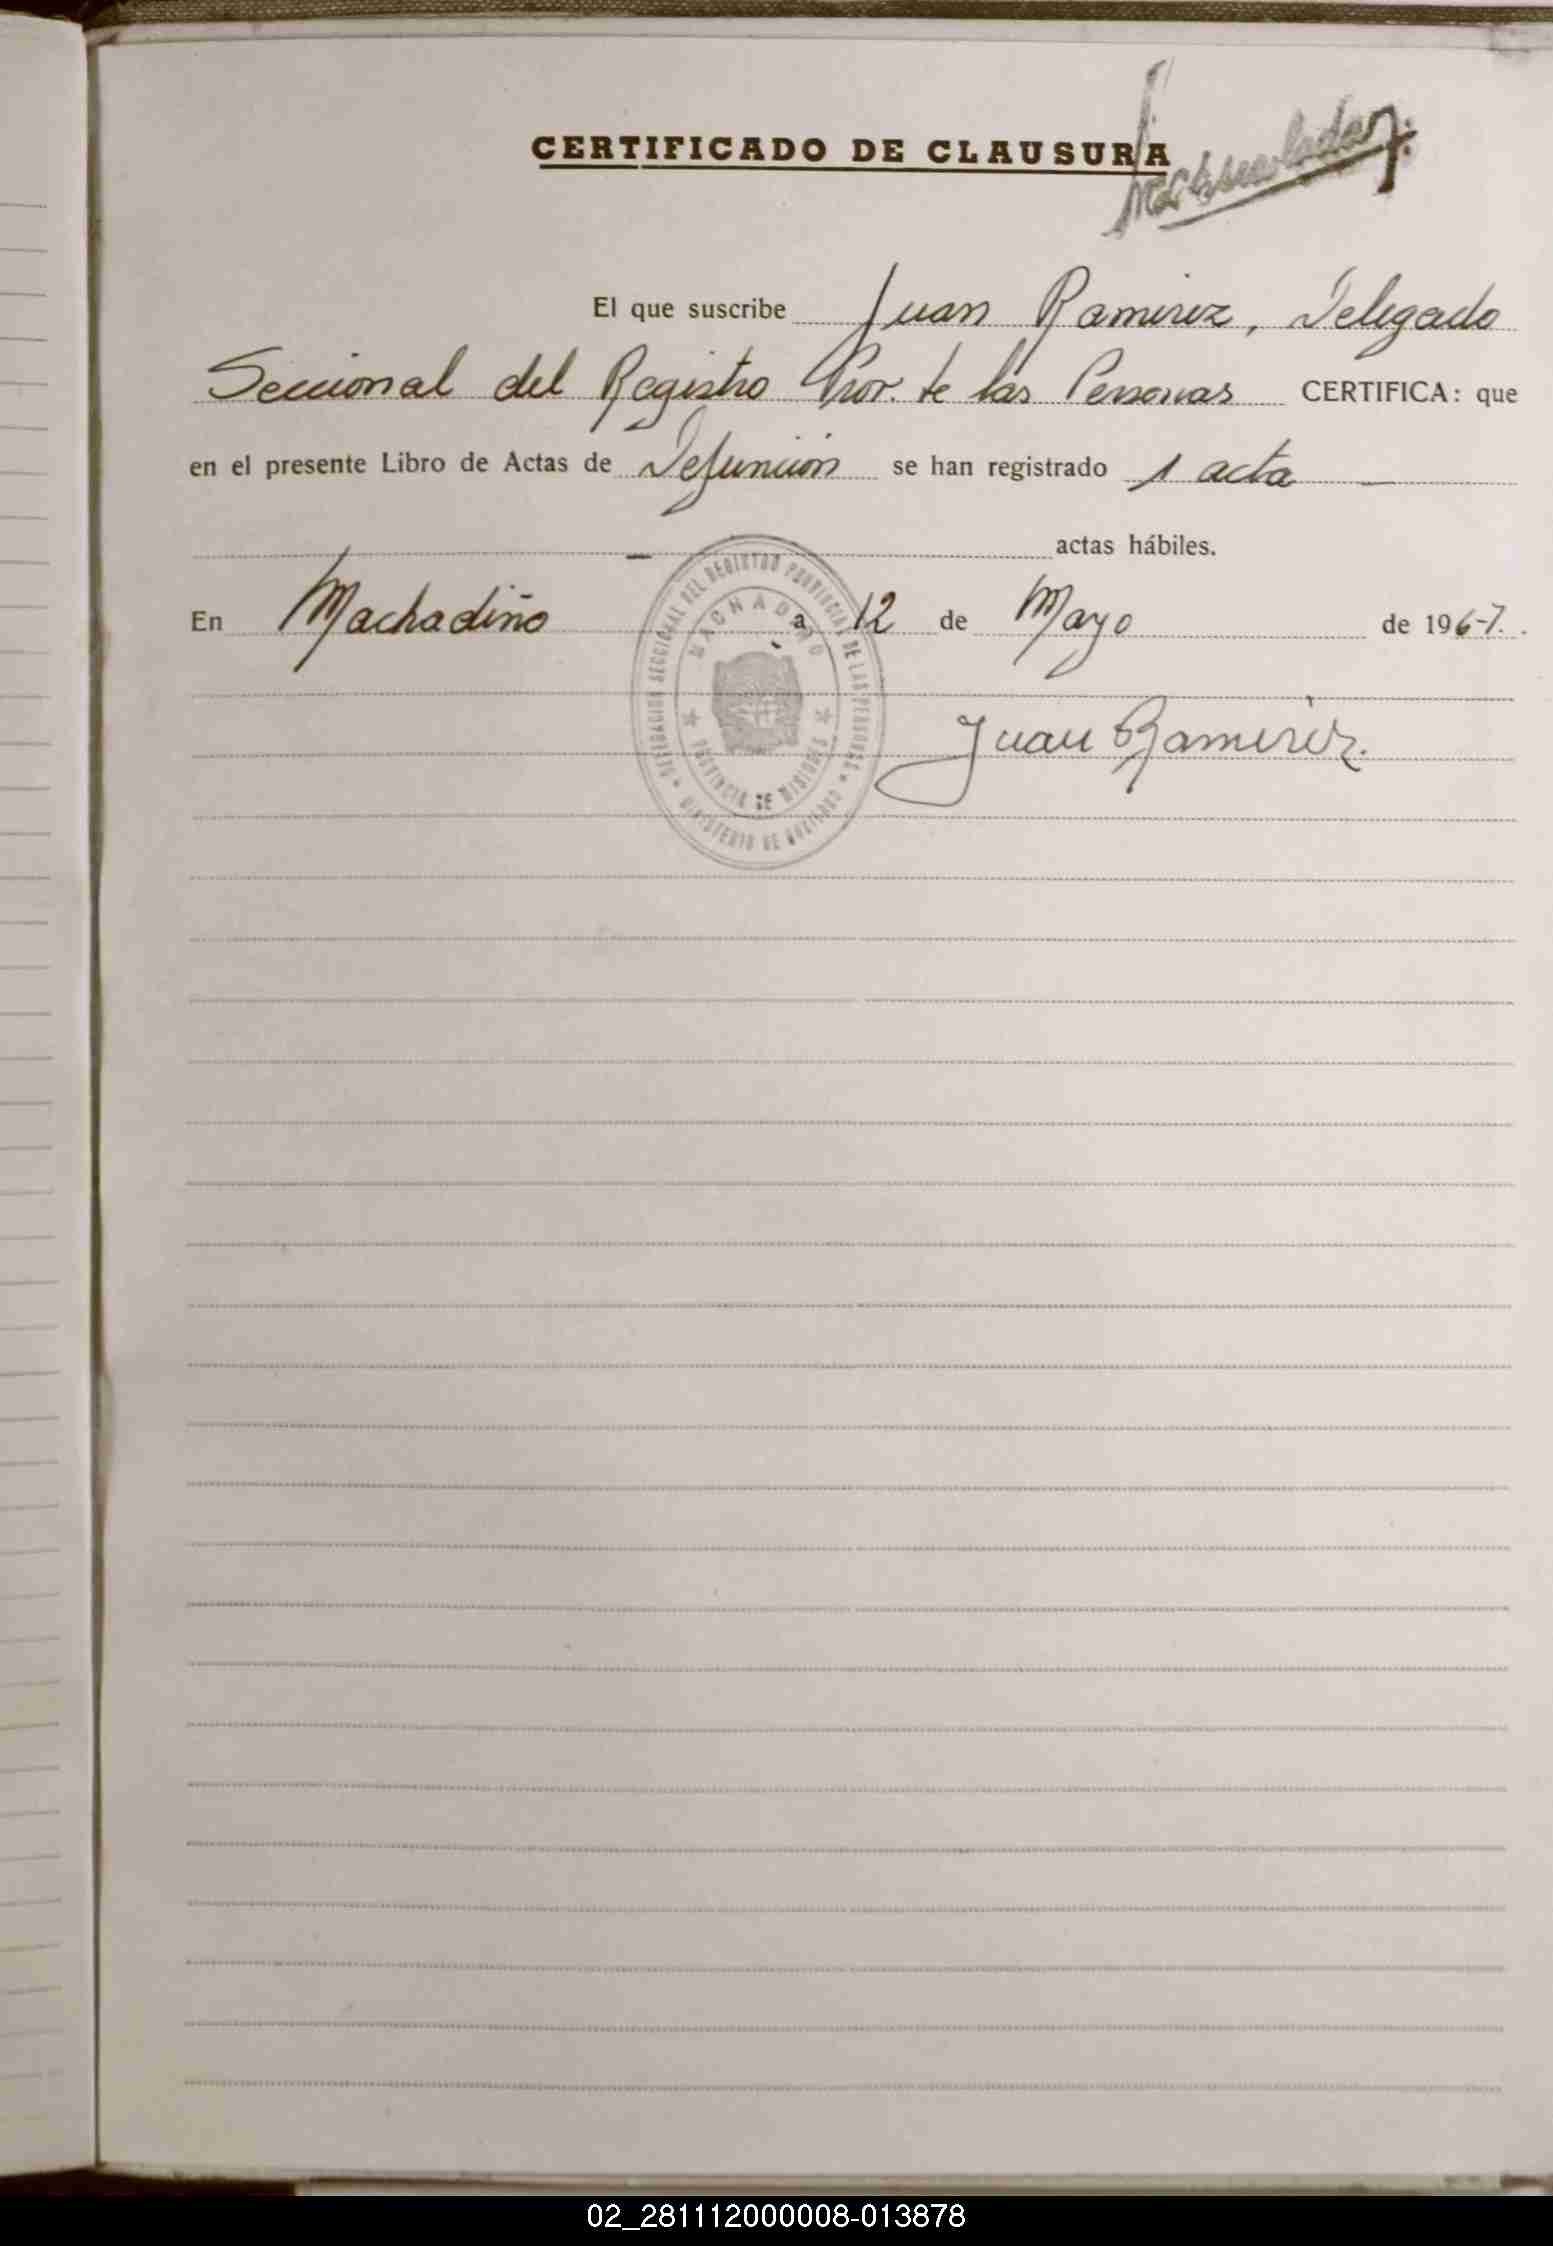 CERTIFICADO DE CLAUSURA
El que suscribe Juan Ramirez, Delegado
Seccional del Registro Prov. de las Personas CERTIFICA: que
en el presente Libro de Actas de Defunción se han registrado 1 acta —
— actas hábiles.
En Machadiño a 12 de Mayo de 1967.
Juan Ramirez.
DELEGACION SECCIONAL DEL REGISTRO PROVINCIAL DE LAS PERSONAS
MINISTERIO DE GOBIERNO
MACHADIÑO
PROVINCIA DE MISIONES
02_281112000008-013878